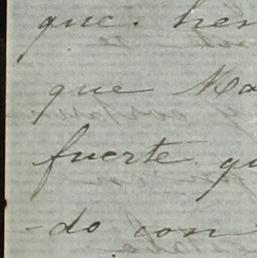 que. hem
que Ma
fuerte qu
-do con